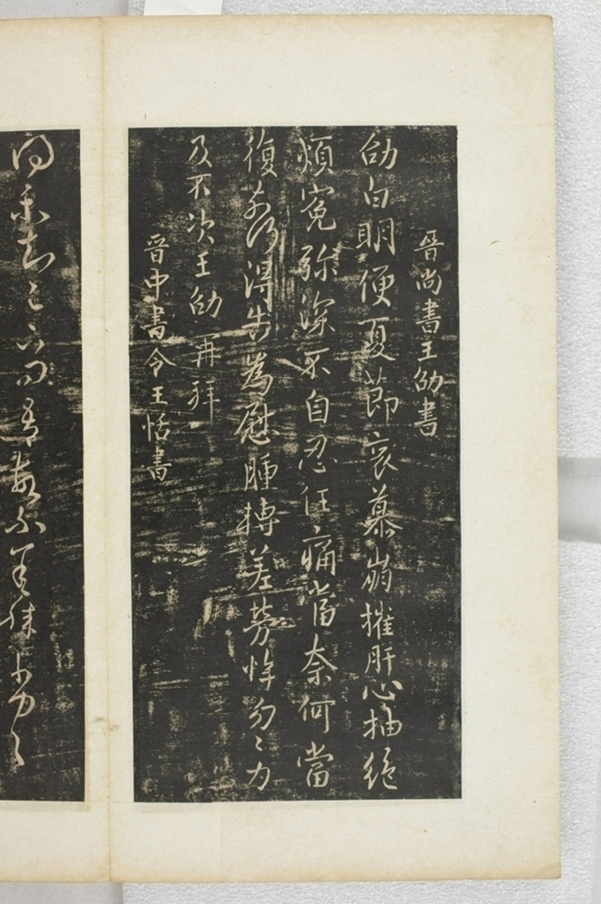 晉尚書王劭書
劭白明便夏節哀慕崩摧肝心抽絕
煩冤弥深不自忍任痛當奈何當
復奈何得告為慰腫轉差勞悴勿〻力
及不次王劭再拜
晉中書令王恬書